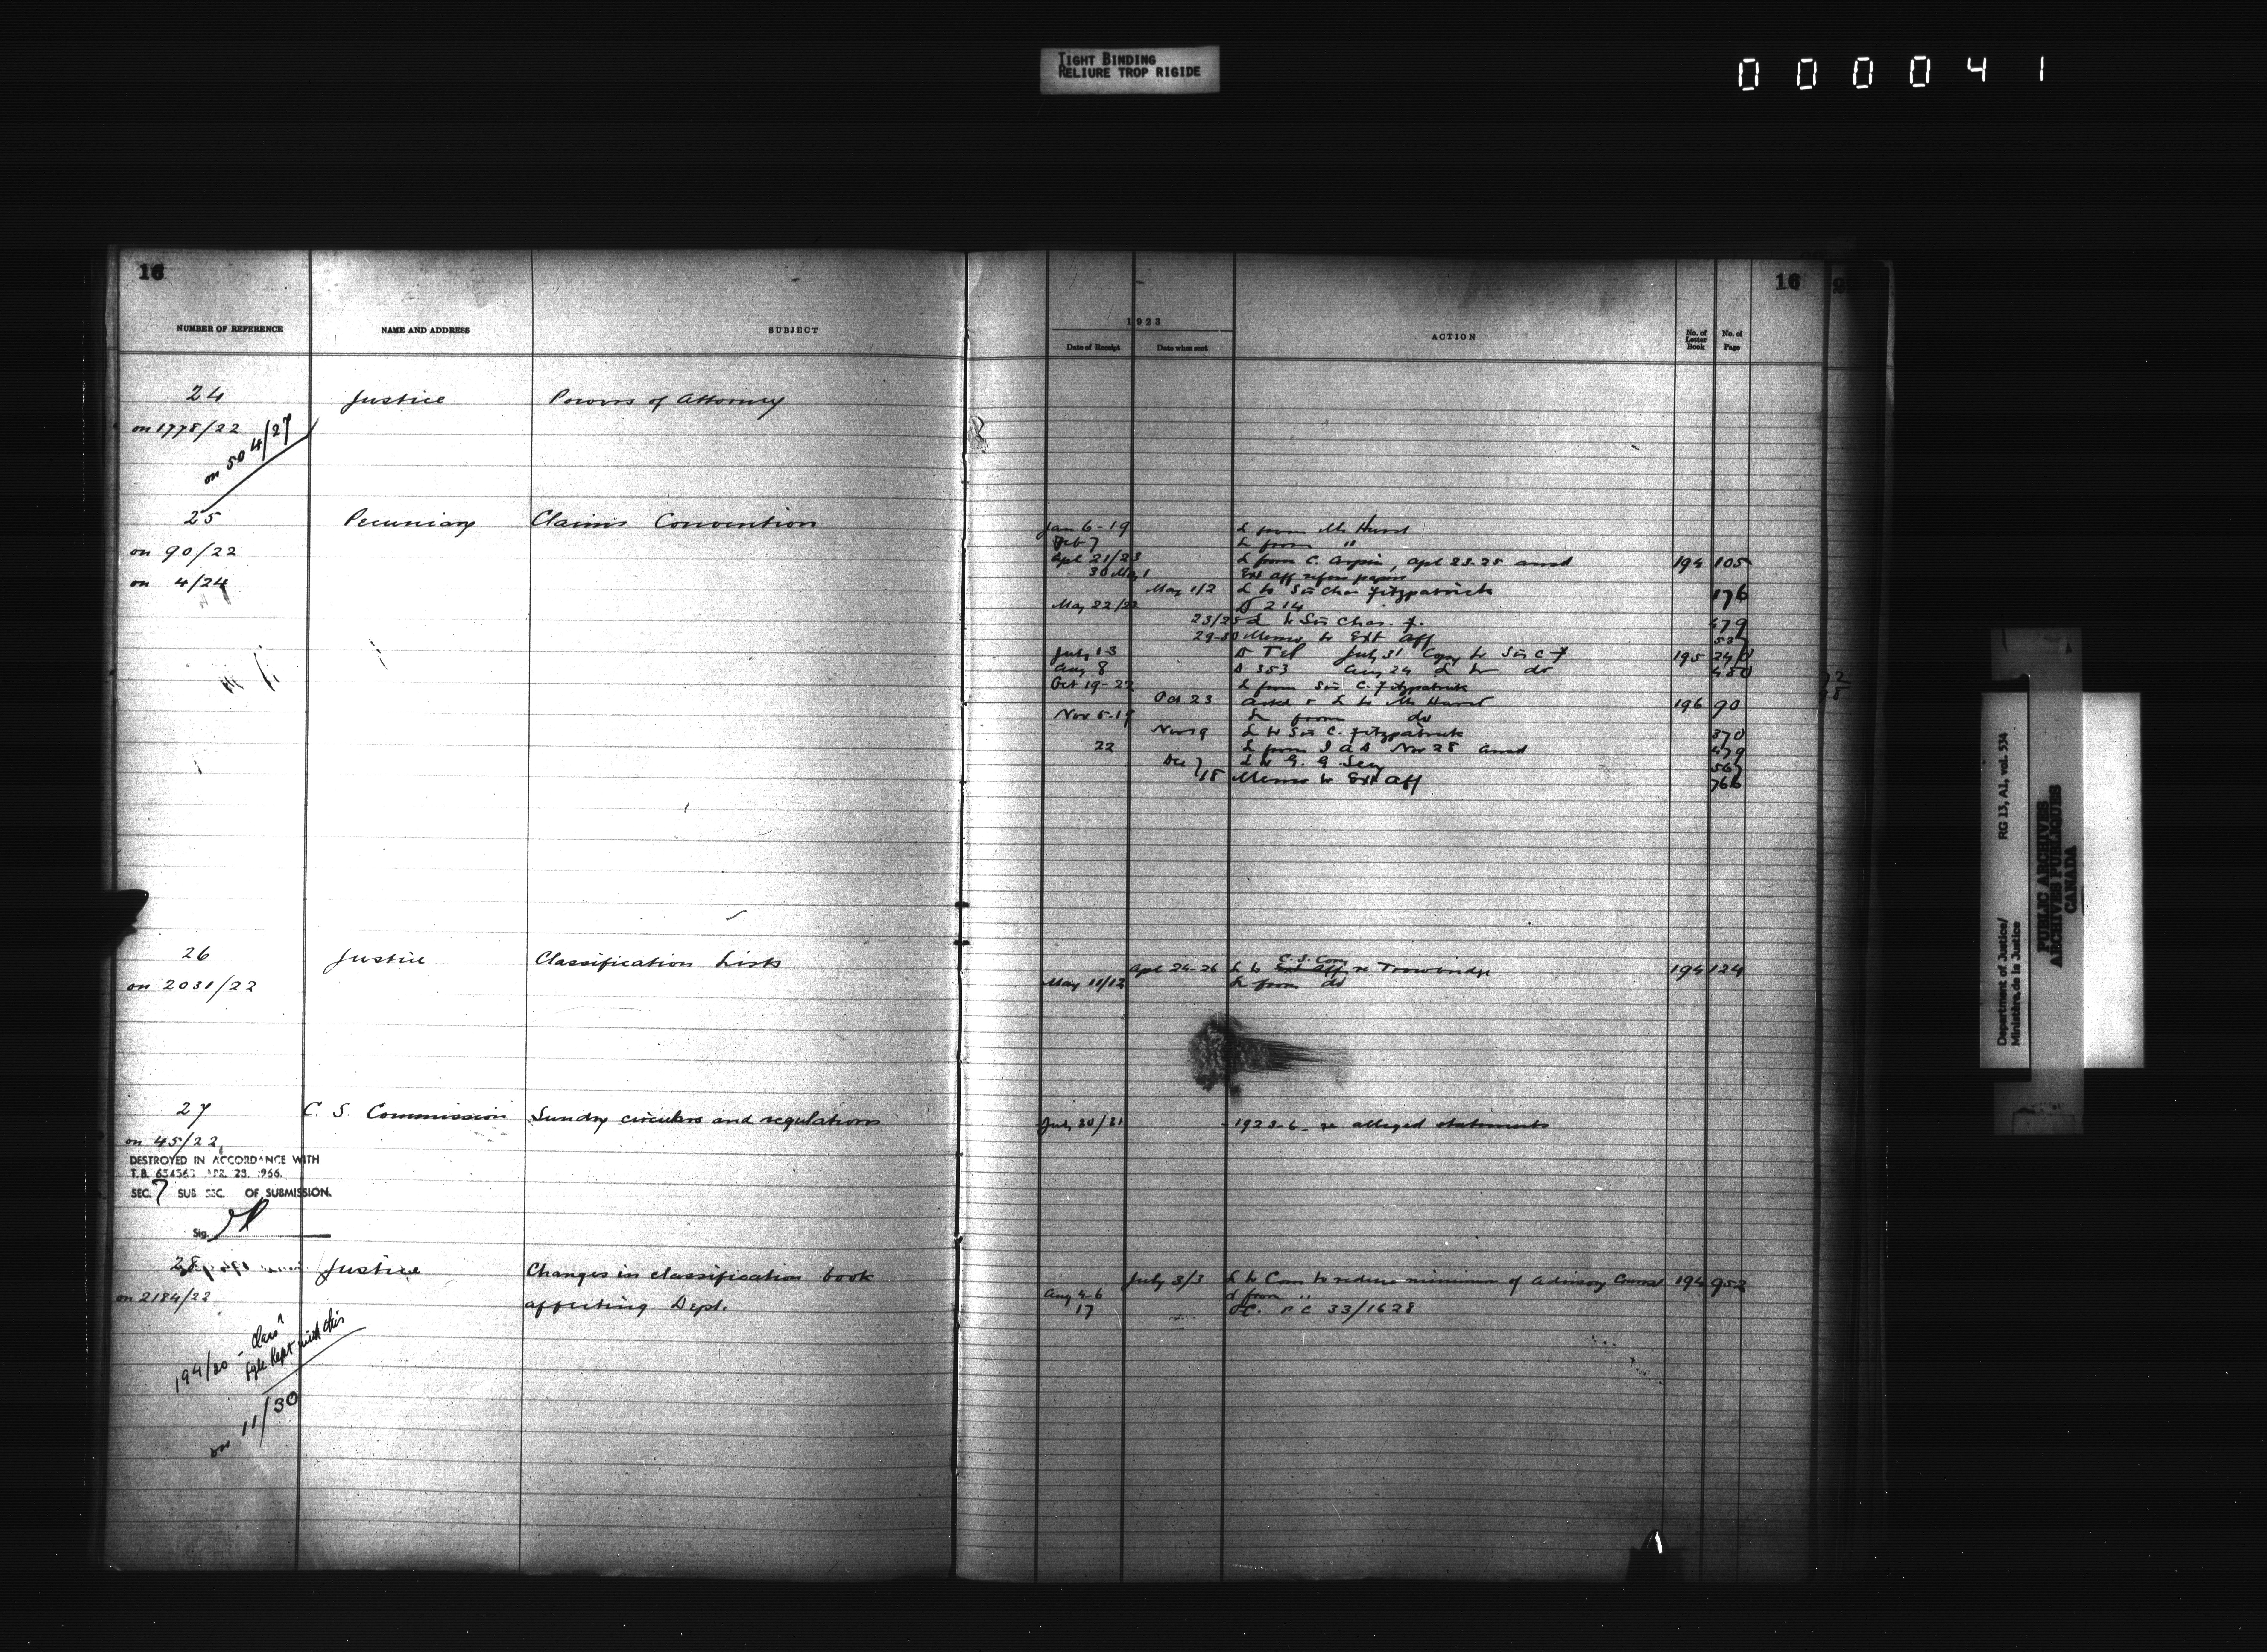 TIGHT BINDING
RELIURE TROP RIGIDE
000041
16
NUMBER OF REFERENCE NAME AND ADDRESS SUBJECT
24 Justice Powers of Attorney
on 1778/22
on 504/27
25 Pecuniary Claims Convention
on 90/22
on 4/24
26 Justice Classification Lists
on 2031/22
27 C. S. Commission Sundry circulars and regulations
on 45/22
DESTROYED IN ACCORDANCE WITH
T.B. 654563 APR. 25. 1966.
SEC. 7 SUB SEC. OF SUBMISSION.
Sig.
28 Justice Changes in classification book
on 2184/22 affecting Dept.
194/20 - Class
fyle kept with this
on 11/30
16
1923
Date of Receipt Date when sent ACTION No. of Letter Book No. of Page
Jan 6-19 L from Mr Hurst
Feb 7 L from "
Apl 21/23 L from C. Arpin, Apl 23.25 ansd 194 105
30 May 1 Ext Aff refers papers
May 1/2 L to Sir Chas Fitzpatrick 176
May 22/23 D 214
23/25 L to Sir Chas. F. 479
29-30 Memo to Ext Aff 537
July 13 D Tel July 31 Copy to Sir C F 195 240
Aug 8 D 353 Aug 24 L to do 480
Oct 19-22 L from Sir C. Fitzpatrick
Oct 23 ackd & L to Mr Hurst 196 90
Nov 5-19 L from do
Nov 19 L to Sir C. Fitzpatrick 370
22 L from I a D Nov 28 ansd 479
Dec 7 L to G. G Secy 567
/18 Memo to Ext Aff 766
C. S. Com
Apl 24-26 L to Ext Aff re Trowbridge 194 124
May 11/12 L from do
July 30/31 1923-6- re alleged statements
July 3/3 L to Com to reduce minimum of Advisory Counsel 194 952
Aug 4-6 L from "
17 O.C. P C 33/1628
Department of Justice/ RG 13, A1, vol. 534
Ministère de la Justice
PUBLIC ARCHIVES
ARCHIVES PUBLIQUES
CANADA